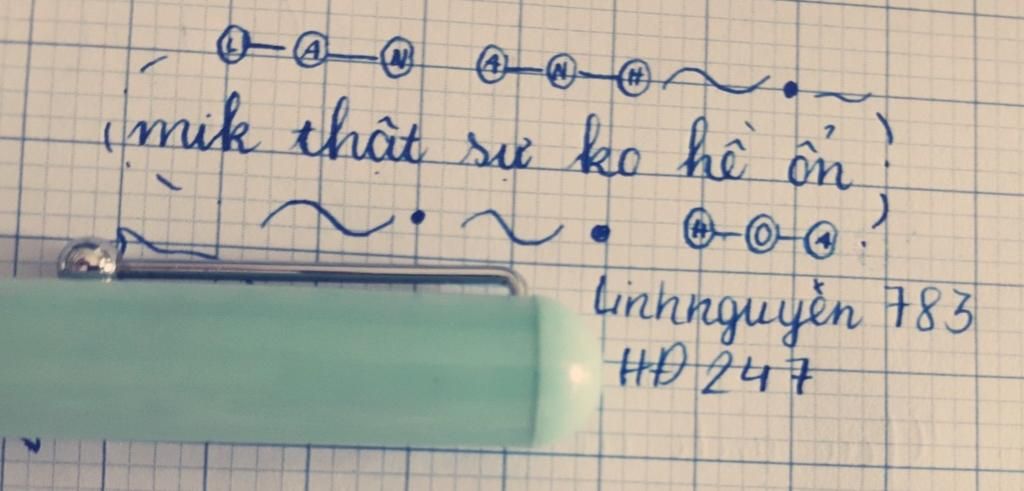 L-A-N A-N-H
mik thật sự ko hề ổn
H-O-A
linhnguyễn 783
HĐ 247